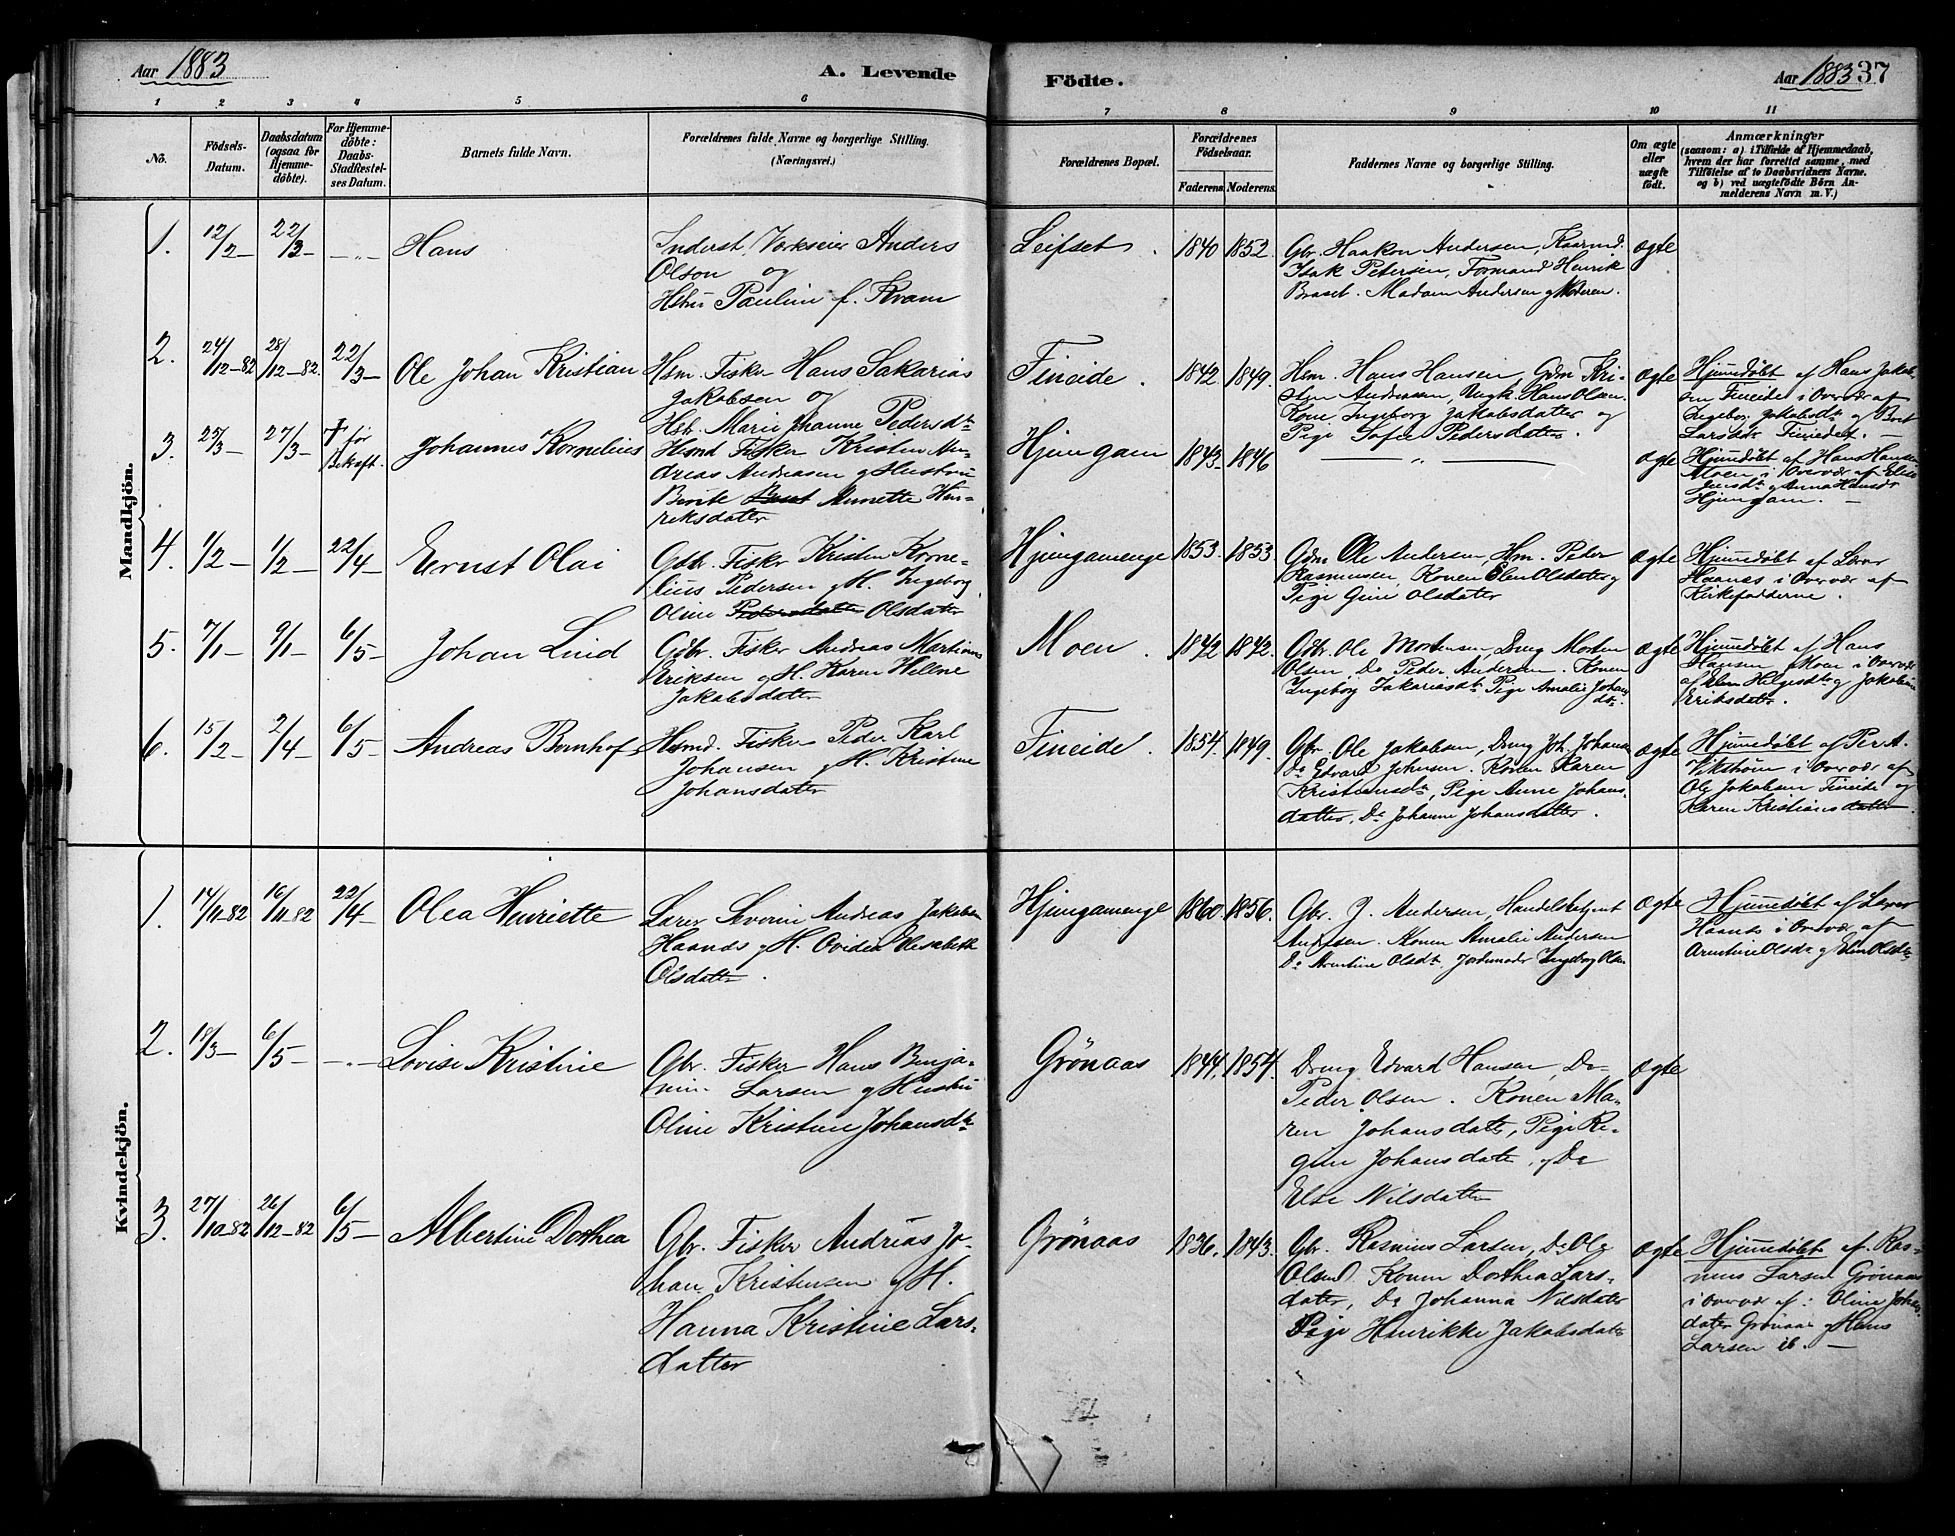 Aar 1883
A. Levende
Födte.
Aar 1883 37
1 2 3 4 5 6 7 8 9 10 11
No.
Födsels-Datum.
Daabsdatum (ogsaa for Hjemme-döbte).
For Hjemme-döbte: Daabs-Stadfæstel-ses Datum.
Barnets fulde Navn.
Forældrenes fulde Navne og borgerlige Stilling.
(Næringsvei.)
Forældrenes Bopæl.
Forældrenes Födselsaar.
Faderens. Moderens.
Faddernes Navne og borgerlige Stilling.
Om ægte eller uægte födt.
Anmærkninger
(saasom: a) i Tilfælde af Hjemmedaab,
hvem der har forrettet samme, med
Tilföielse af to Daabsvidners Navne.
og b) ved uægtefödte Börn An-
melderens Navn m. V.)
Mandkjön.
1. 12/2 22/3 Hans
Inderst, Anders
Olson og
Hstru Pauline f. Kvam
Leifset. 1840 1852.
Gbr. Haakon Andersen,
Isak Petersen, Formand Henrik
Braset. Madam Andersen og Moderen.
ægte
2. 24/12-82 28/12-82 22/3 Ole Johan Kristian
Hsm. Fisker Hans Sakarias
Jakobsen og
Hstr. Marie Johanne Pedersdtr
Fineide. 1842 1849.
Hsm. Hans Hansen, Gdm Kri-
sten Andersen, Ungk. Hans Olsen
Kone Ingeborg Jakobsdatter og
Pige Sofie Pedersdatter.
ægte
Hjemmedøbt af Hans Jakob-
sen Fineide i Overvær af
Ingeborg Jakobsdtr og Berit
Larsdtr Fineidet.
3. 25/3 27/3 † før Bekræft. Johannes Kornelius
Hsmd Fisker Kristen An-
dreas Andreasen og Hustru
Berite Annette Hen-
riksdatter
Hjemgam 1843. 1846
ægte
Hjemmedøbt af Hans Hansen
Moen, i Overvær af
og Anna Hansdtr
Hjemgam.
4. 1/2 1/2 22/4 Ernst Olai
Gdbr. Fisker Kristen Korne-
lius Pedersen og H. Ingeborg
Oline Pedersdatter Olsdatter
Hjemgamenge 1853. 1853
Gdm Ole Andersen, Hm. Peder
Rasmussen, Konen Elen Olsdatter og
Pige Gine Olsdatter
ægte
Hjemmedøbt af Lærer
Haanes i Overvær af
Kirkefadderne.
5. 7/1 9/1 6/5 Johan Lind
Gdbr. Fisker Andreas Martinus
Eriksen og H. Karen Hellene
Jakobsdatter
Moen. 1842 1842.
Gdbr. Ole Mortensen, Dreng Morten
Olsen, Do Peder Andersen. Konen
Ingeborg Zakariasdtr Pige Amalie Johans-
dtr.
ægte
Hjemmedøbt af Hans
Hansen Moen i Overvær
af Elen Helgesdtr og Jakobine
Eriksdatter.
6. 15/2 2/4 6/5 Andreas Bernhof
Hsmd. Fisker Peder Karl
Johansen og H. Kristine
Johansdatter
Fineide. 1854. 1849.
Gbr. Ole Jakobsen, Dreng Joh. Johansen
Do Edvard Johnsen. Konen Karen
Kristiansdtr, Pige Anne Johans-
datter, Do Johanne Johansdatter.
ægte
Hjemmedøbt af Per A.
Vikstrøm i Overvær af
Ole Jakobsen Fineide og
Karen Kristiansdatter.
Kvindekjön.
1. 14/11-82 16/11-82 22/4 Olea Henriette
Lærer Severin Andreas Jakobsen
Haanes og H. Ovidia Elisabeth
Olsdatter.
Hjemgamenge 1860. 1856.
Gbr. J. Andersen, Handelsbetjent
Andersen. Konen Amalie Andersen
Do Arntine Olsdtr. Jordemoder Ingeborg Olsen
ægte
Hjemmedøbt af Lærer
Haanes i Overvær af
Arntine Olsdtr og Elen Olsdtr
2. 18/3 6/5 Lovise Kristine
Gbr. Fisker Hans Benja-
min Larsen og Hustru
Oline Kristine Johansdtr
Grönaas 1844. 1854.
Dreng Edvard Hansen, Do
Peder Olsen. Konen Ma-
ren Johansdatter, Pige Re-
gine Johansdatter, og Do
Else Nilsdatter
ægte
3. 27/10-82 26/12-82 6/5 Albertine Dorthea
Gbr. Fisker Andreas Jo-
han Kristensen og H.
Hanna Kristine Lars-
datter
Grönaas 1836. 1843.
Gbr. Rasmus Larsen, Do Ole
Olsen. Konen Dorthea Lars-
datter, Do Johanna Nilsdatter
Pige Henrikke Jakobsdatter
ægte
Hjemmedøbt af Ras-
mus Larsen Grönaas
i Overvær af: Oline Johans-
datter Grönaas og Hans
Larsen ib.